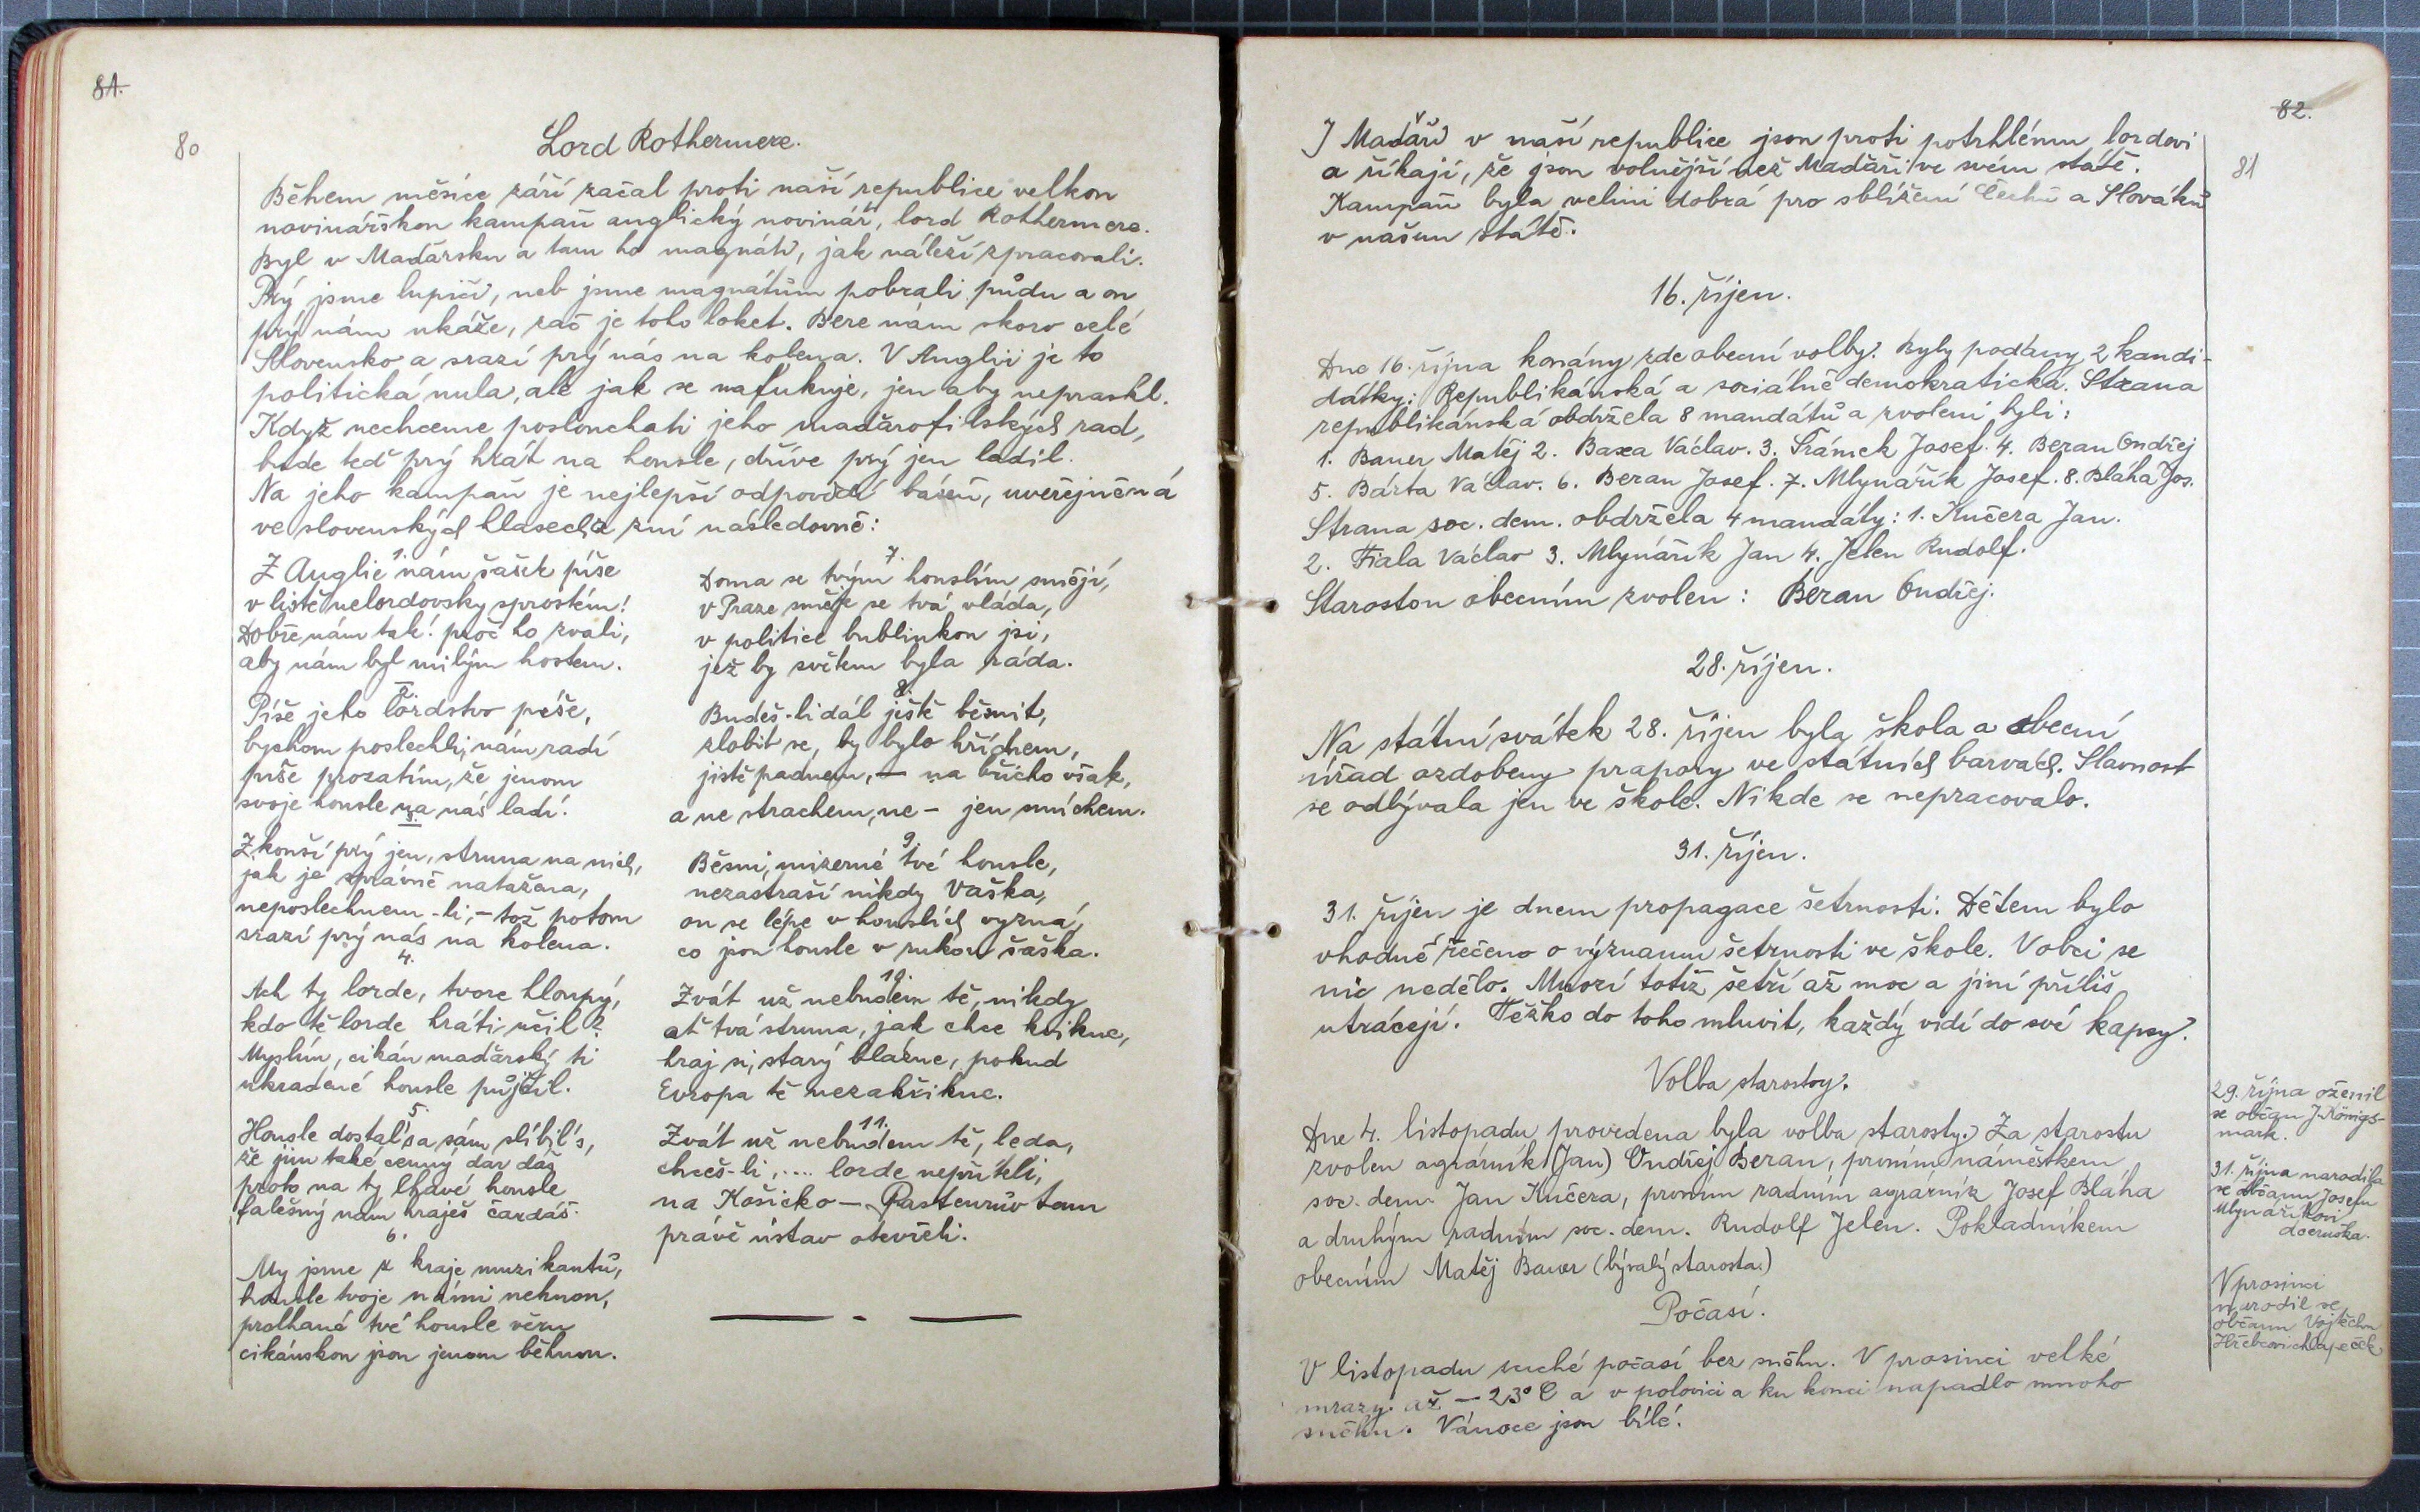 81.
80
Lord Rothermere.
Během měsíce září začal proti naší republice velkou
novinářskou kampaň anglický novinář, lord Rothermere.
Byl v Maďarsku a tam ho magnáti, jak náleží zpracovali.
Prý jsme lupiči, neb jsme magnátům pobrali půdu a on
prý nám ukáže, zač je toho loket. Bere nám skoro celé
Slovensko a srazí prý nás na kolena. V Anglii je to
politická nula, ale jak se nafukuje, jen aby nepraskl.
Když nechceme poslouchati jeho maďarofilských rad,
bude teď prý hrát na housle, dříve prý jen ladil.
Na jeho kampaň je nejlepší odpovědí báseň, uveřejněná
ve slovenských hlasech a zní následovně:
1.
Z Anglie nám šašek píše
v listě nelordovsky sprostém!
Dobře nám tak! proč ho zvali,
aby nám byl milým hostem.
2.
Píše jeho lordstvo píše,
bychom poslechli, nám radí
píše prozatím, že jenom
svoje housle na nás ladí.
3.
Zkouší prý jen, struna na nich,
jak je správně natažena,
neposlechnem-li, – tož potom
srazí prý nás na kolena.
4.
Ach ty lorde, tvore hloupý,
kdo tě lorde hráti učil?
Myslím, cikán maďarský ti
ukradené housle půjčil.
5.
Housle dostal's a sám slíbil's,
že jim také cenný dar dáš
proto na ty lhavé housle
falešný nám hraješ čardáš.
6.
My jsme z kraje muzikantů,
housle tvoje námi nehnou,
prolhané tvé housle věru
cikánskou jsou jenom běhnou.
7.
Doma se tvým houslím smějí,
v Praze směje se tvá vláda,
v politice bublinkou jsi,
jež by světem byla ráda.
8.
Budeš-li dál ještě běsnit,
zlobit se, by bylo hříchem,
jistě padnem, – na břicho však,
a ne strachem, ne – jen smíchem.
9.
Běsni, mizerné tvé housle,
nezastraší nikdy Vaška,
on se lépe v houslích vyzná,
co jsou housle v rukou šaška.
10.
Zvát už nebudem tě, nikdy
ať tvá struna, jak chce kvikne,
hraj si, starý blázne, pokud
Evropa tě nezakřikne.
11.
Zvát už nebudem tě, leda,
chceš-li, .... lorde nepříteli,
na Košicko – Pasteurův tam
právě ústav otevřeli.
82.
81
I Maďaři v naší republice jsou proti potrhlému lordovi
a říkají, že jsou volnější než Maďaři ve svém státě.
Kampaň byla velmi dobrá pro sblížení Čechů a Slováků
v našem státě.
16. říjen.
Dne 16. října konány zde obecní volby. Byly podány 2 kandi-
dátky: Republikánská a sociálně demokratická. Strana
republikánská obdržela 8 mandátů a zvoleni byli:
1. Bauer Matěj 2. Baxa Václav. 3. Šrámek Josef. 4. Beran Ondřej
5. Bárta Václav. 6. Beran Josef. 7. Mlynářík Josef. 8. Bláha Jos.
Strana soc. dem. obdržela 4 mandáty: 1. Kučera Jan.
2. Fiala Václav 3. Mlynářík Jan 4. Jelen Rudolf.
Starostou obecním zvolen: Beran Ondřej.
28. říjen.
Na státní svátek 28. říjen byla škola a obecní
úřad ozdobeny prapory ve státních barvách. Slavnost
se odbývala jen ve škole. Nikde se nepracovalo.
31. říjen.
31. říjen je dnem propagace šetrnosti. Dětem bylo
vhodně řečeno o významu šetrnosti ve škole. V obci se
nic nedělo. Mnozí totiž šetří až moc a jiní příliš
utrácejí. Těžko do toho mluvit, každý vidí do své kapsy.
Volba starosty.
Dne 4. listopadu provedena byla volba starosty. Za starostu
zvolen agrárník (Jan) Ondřej Beran, prvním náměstkem
soc. dem. Jan Kučera, prvním radním agrárník Josef Bláha
a druhým radním soc. dem. Rudolf Jelen. Pokladníkem
obecním Matěj Bauer (bývalý starosta.)
Počasí.
V listopadu suché počasí bez sněhu. V prosinci velké
mrazy až – 23° C a v polovici a ku konci napadlo mnoho
sněhu. Vánoce jsou bílé.
29. října oženil
se občan J. Königs-
mark.
31. října narodila
se občanu Josefu
Mlynaříkovi
dceruška.
V prosinci
narodil se
občanu Vojtěchu
chlapeček